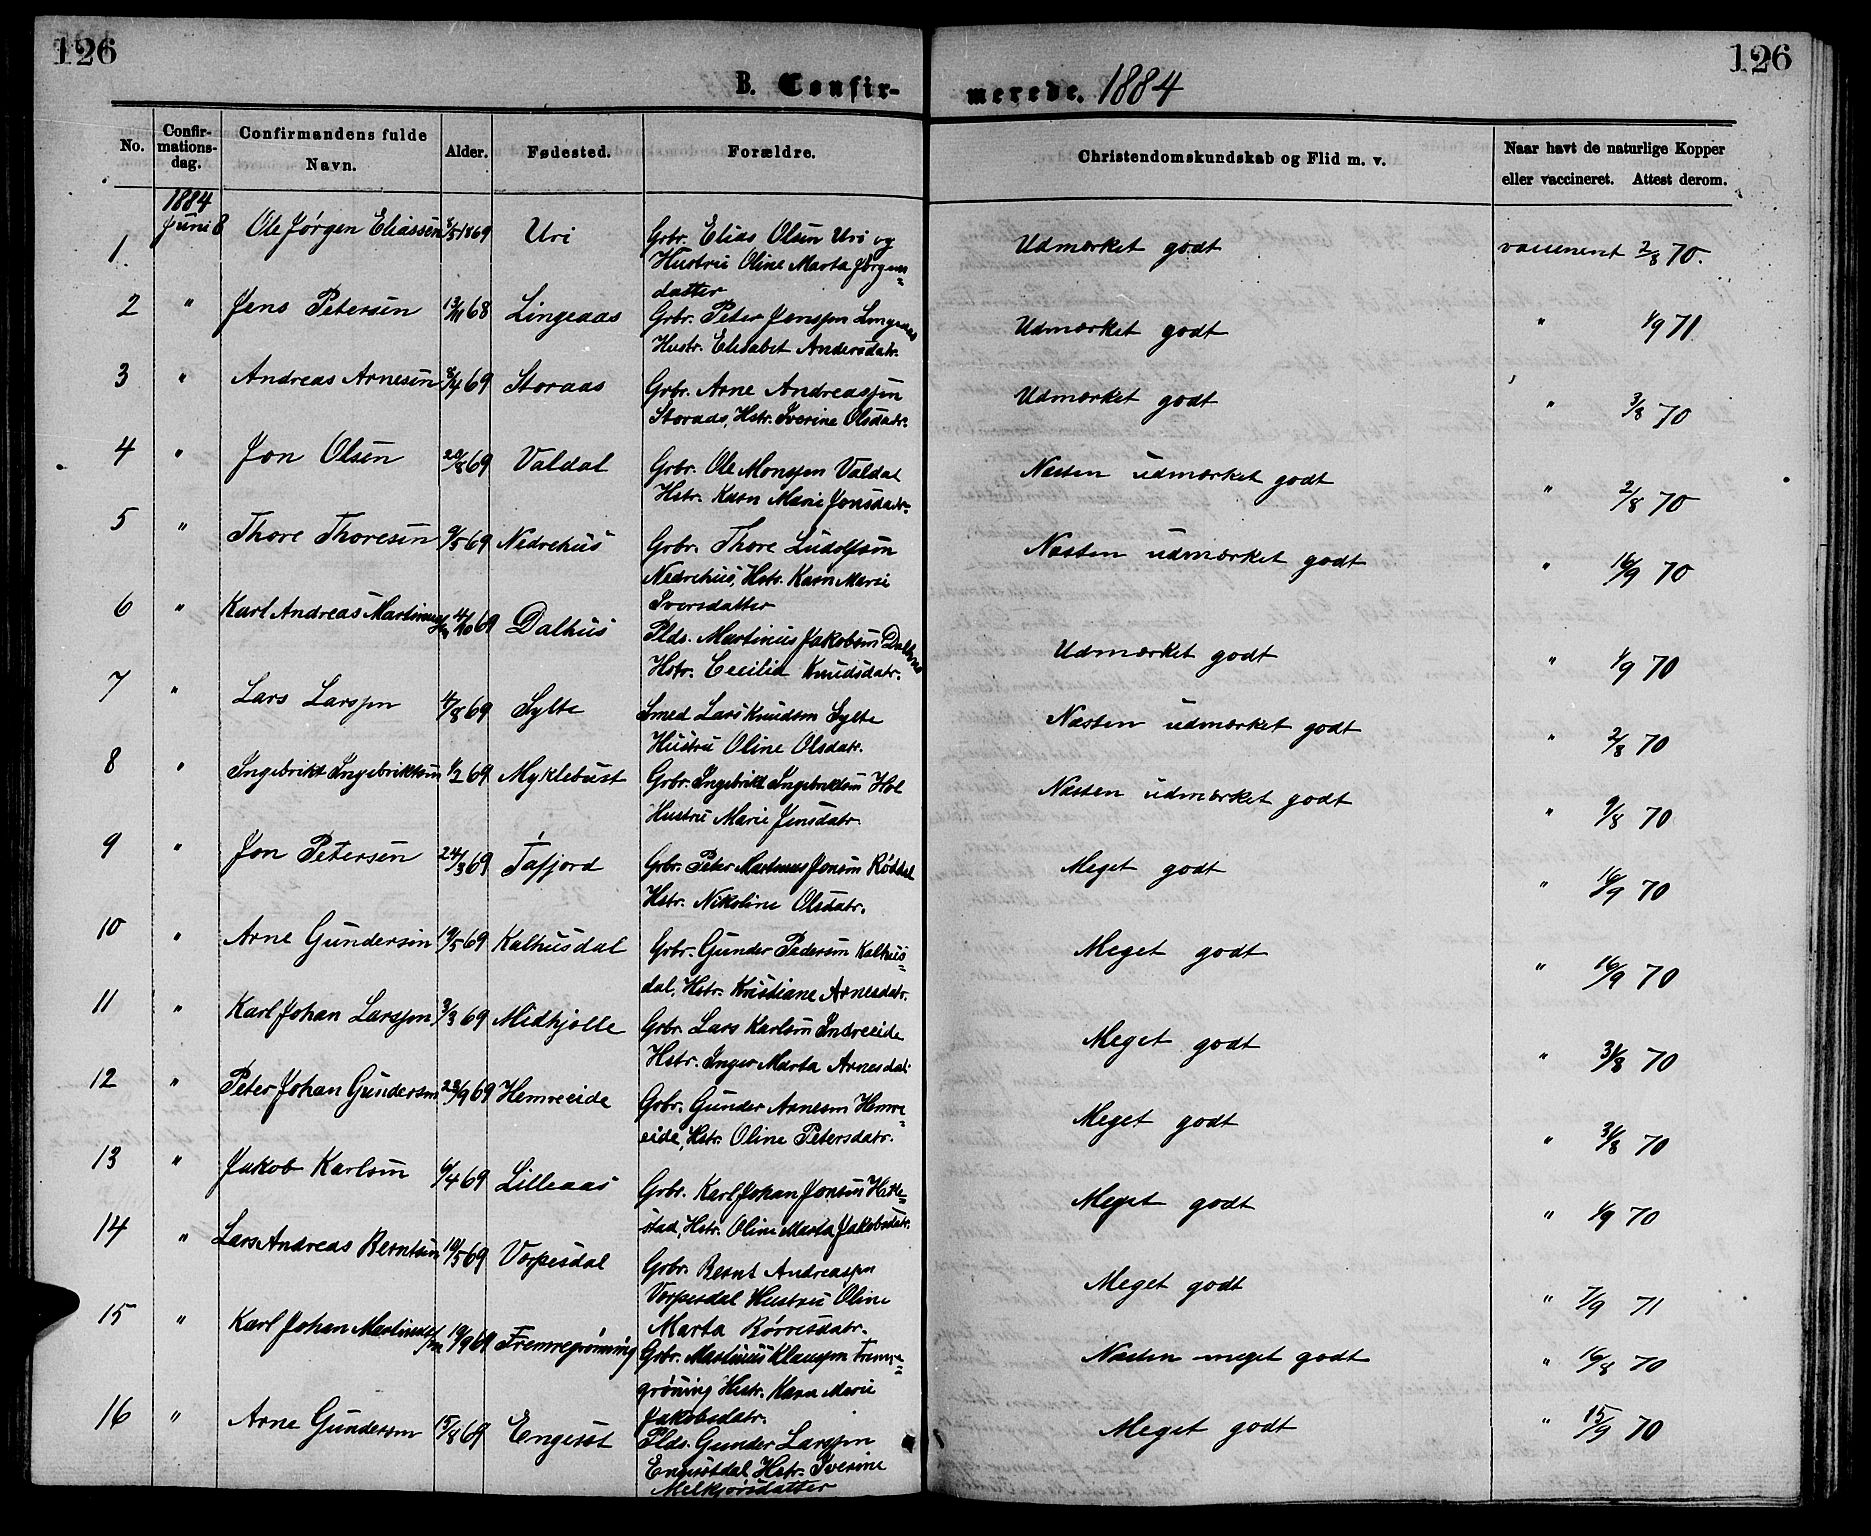 126
126
B. Confir-
merede. 1884
No.
Confir-
mations-
dag.
Confirmandens fulde
Navn.
Alder.
Fødested.
Forældre.
Christendomskundskab og Flid m. v.
Naar havt de naturlige Kopper
eller vaccineret. Attest derom.
1884
1 Juni 8 Ole Jørgen Eliassen 3/5 1869 Uri Grbr. Elias Olsen Uri og Udmærket godt vaccineret 2/8 70.
Hustru Oline Marta Jørgens=
datter
2 " Jens Petersen 13/11 68 Lingeaas Grbr. Peter Jenssen Lingeaas Udmærket godt " 1/9 71
Hustr. Elisabet Andersdatr.
3 " Andreas Arnesen 8/4 69 Storaas Grbr. Arne Andreassen Udmærket godt " 3/8 70
Storaas, Hstr. Iverine Olsdatr.
4 " Jon Olsen 20/8 69 Valdal Grbr. Ole Monssen Valdal Næsten udmærket godt " 2/8 70
Hstr. Karn Marie Jonsdatr.
5 " Thore Thoresen 9/5 69 Nedrehus Grbr. Thore Ludolfsen Næsten udmærket godt " 16/9 70
Nedrehus, Hstr. Karn Marie
Iversdatter
6 " Karl Andreas Martinussen 4/10 69 Dalhus Plds. Martinus Jakobsen Dalhus Udmærket godt " 1/9 70
Hstr. Cecilia Knudsdatr.
7 " Lars Larssen 4/8 69 Sylte Smed Lars Knudsen Sylte Næsten udmærket godt " 2/8 70
Hustru Oline Olsdatr.
8 " Ingebrikt Ingebriktsen 1/2 69 Myklebust Grbr. Ingebrikt Ingebriktsen Hol Næsten udmærket godt " 9/8 70
Hustru Marie Jensdatr.
9 " Jon Petersen 24/3 69 Tafjord Grbr. Peter Martinus Jonsen Røddal Meget godt " 16/9 70
Hstr. Nikoline Olsdatr.
10 " Arne Gundersen 19/5 69 Kalhusdal Grbr. Gunder Pedersen Kalhus= Meget godt " 16/9 70
dal, Hstr. Kristiane Arnesdatr.
11 " Karl Johan Larssen 3/3 69 Midhjølle Grbr. Lars Karlsen Indreeide Meget godt " 31/8 70
Hstr. Inger Marta Arnesdat.
12 " Peter Johan Gundersen 23/9 69 Hemreeide Grbr. Gunder Arnesen Hemre= Meget godt " 31/8 70
eide, Hstr. Oline Petersdatr.
13 " Jakob Karlsen 6/4 69 Lilleaas Grbr. Karl Johan Jonsen Hatle= Meget godt " 1/9 70
stad, Hstr. Oline Marta Jakobsdatr.
14 " Lars Andreas Berntsen 10/5 69 Vorpesdal Grbr. Bernt Andreassen Meget godt " 7/9 71
Vorpesdal Hustru Oline
Marta Børresdatr.
15 " Karl Johan Martinussen 19/9 69 Fremregrøning Grbr. Martinus Klaussen Fremre= Næsten meget godt " 16/8 70
grøning Hustr. Karn Marie
Jakobsdatr.
16 " Arne Gundersen 15/8 69 Engeset Plds. Gunder Larssen Meget godt " 15/9 70
Engesetdal, Hstr. Iverine
Melkjørsdatter